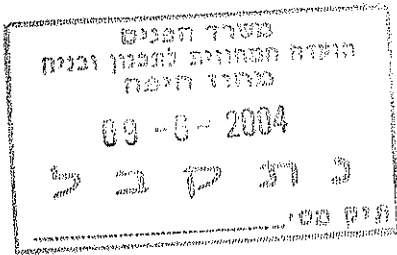 משרד הפנים
הועדה המחוזית לתכנון ובניה
מחוז חיפה
09-6-2004
נ ת ק ב ל
תיק מס'